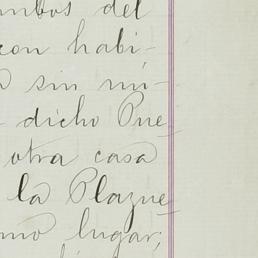 umbos del
con habi-
sin nú-
dicho Pue-
otra casa
la Plazue
smo lugar;